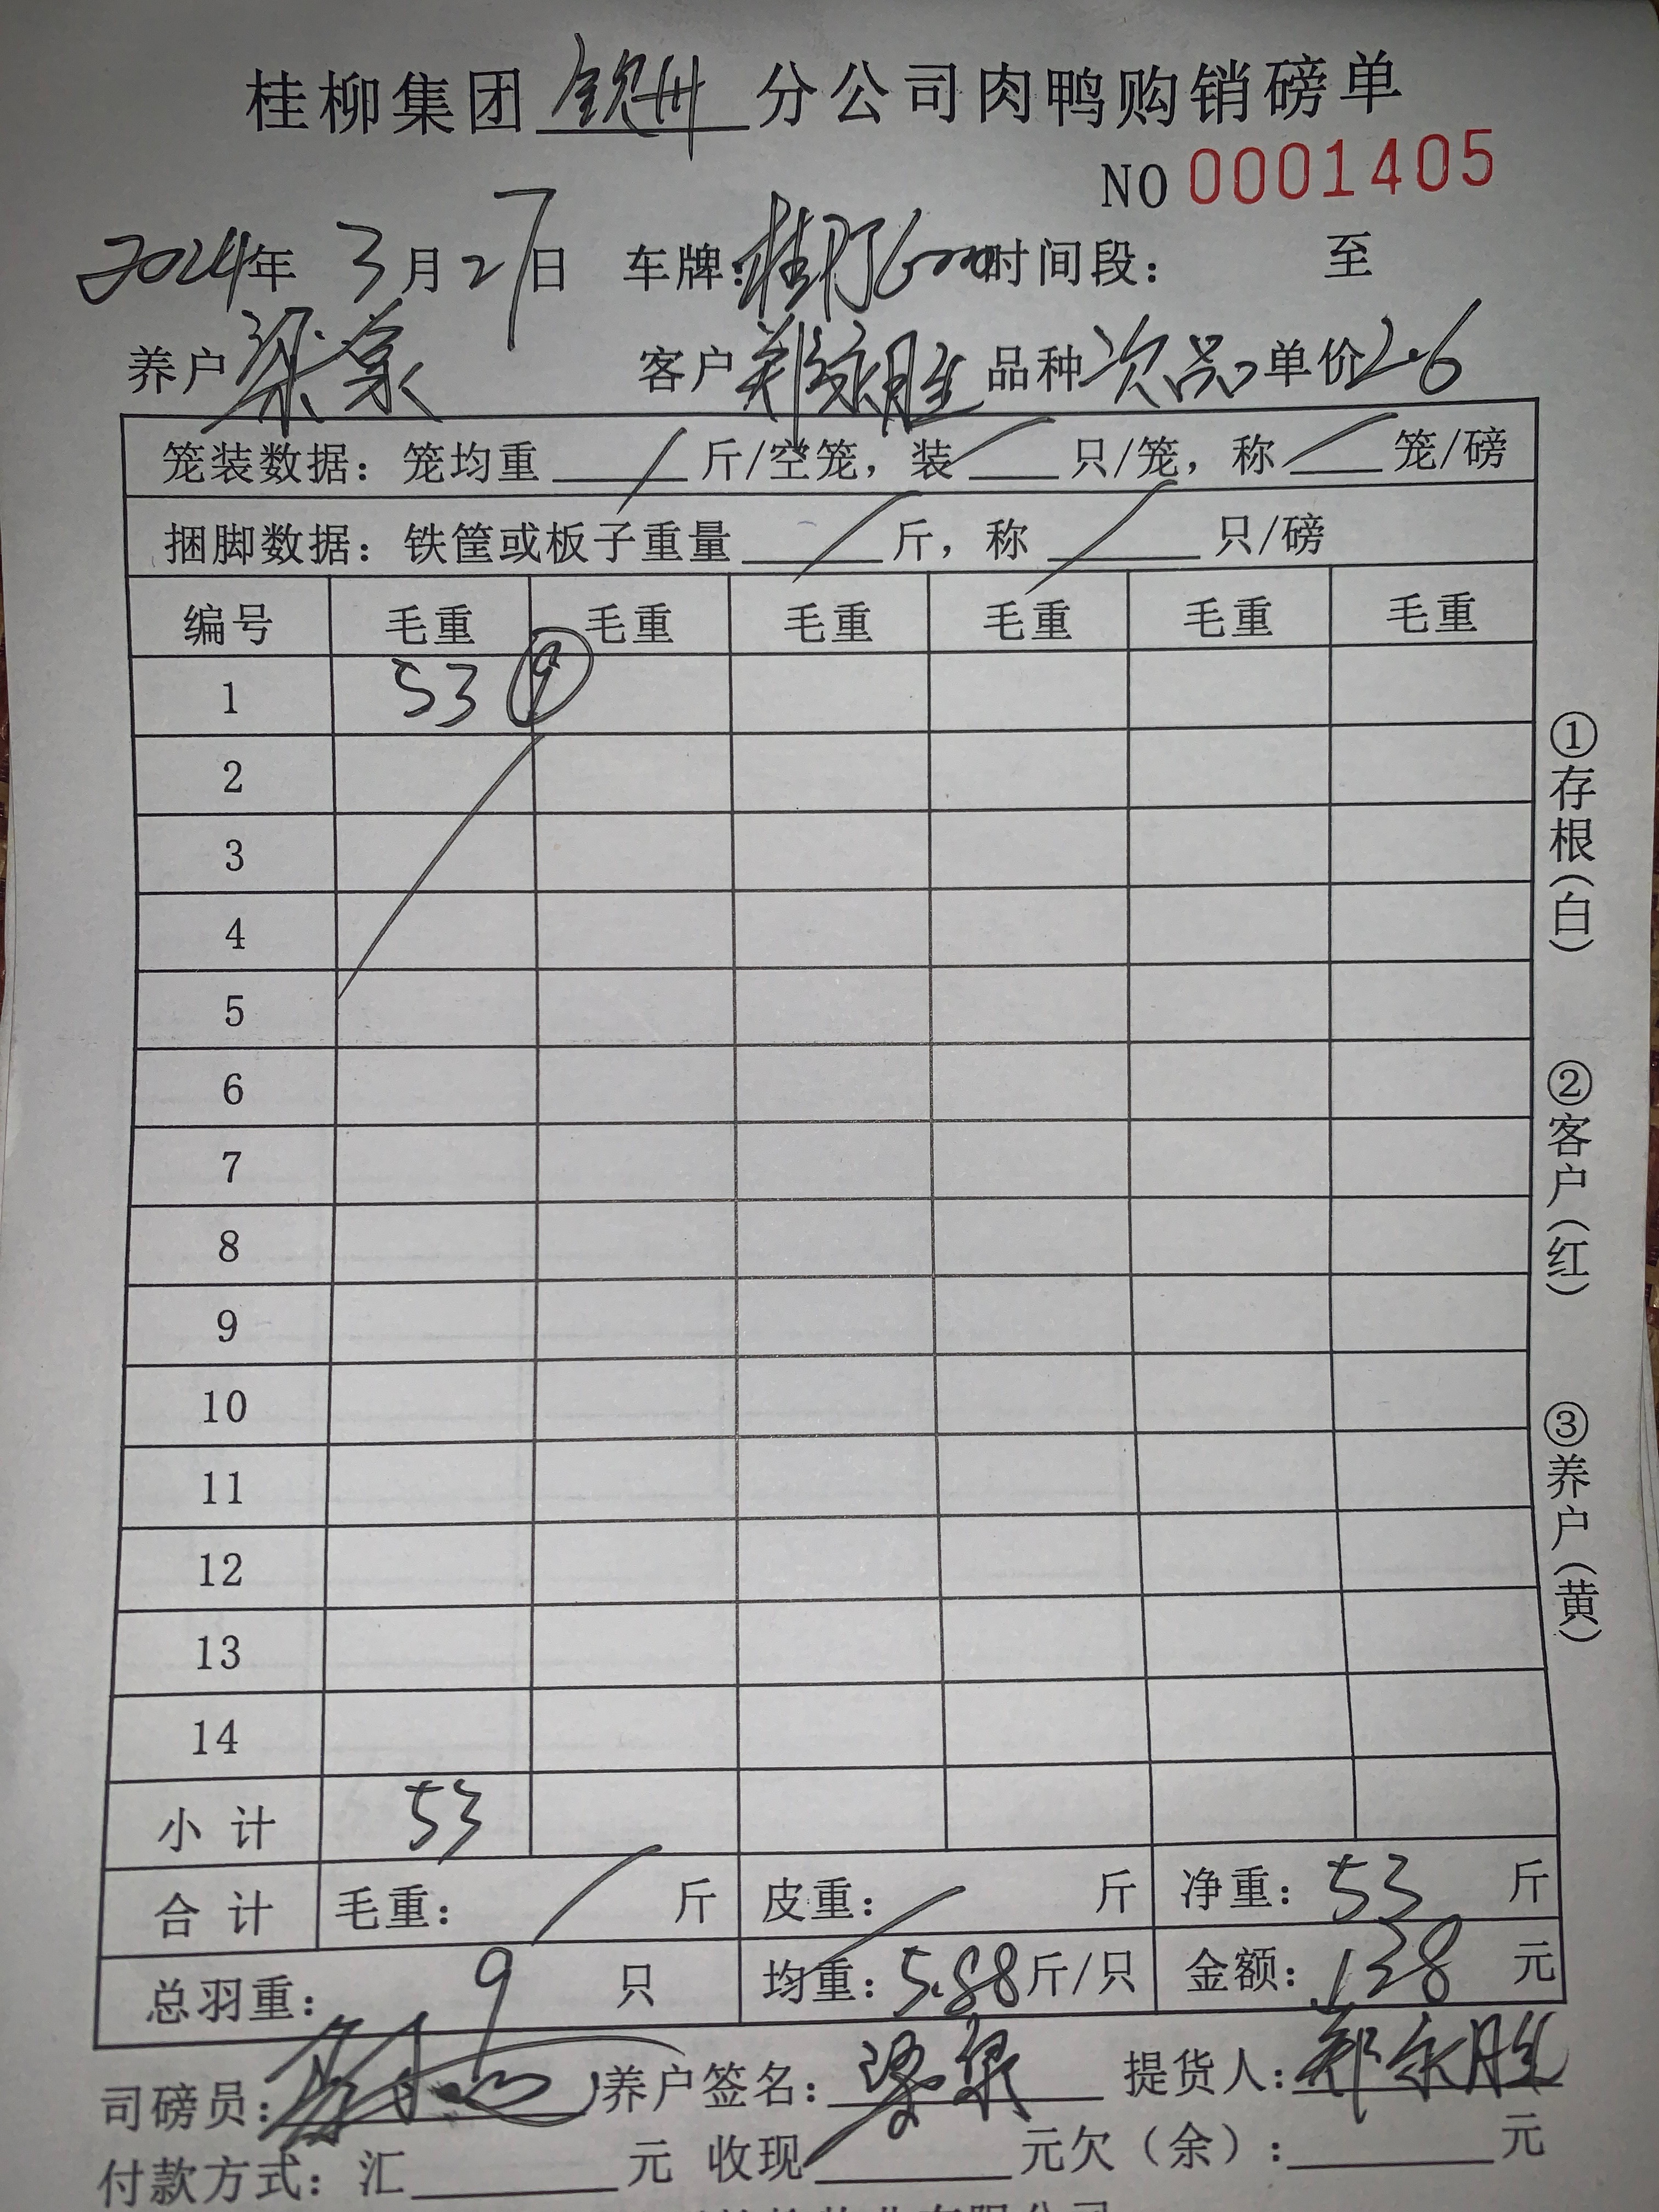 桂柳集团 钦州 分公司肉鸭购销磅单
NO 0001405
2024年 3月27日 车牌: 时间段: 至
养户 梁泉 客户 郑永胜 品种 次品 单价 2.6
笼装数据: 笼均重 / 斤/空笼, 装 / 只/笼, 称 / 笼/磅
捆脚数据: 铁筐或板子重量 / 斤, 称 / 只/磅
编号 毛重 毛重 毛重 毛重 毛重 毛重
1 53 ⑨
2
3
4
5
6
7
8
9
10
11
12
13
14
小计 53
合计 毛重: / 斤 皮重: / 斤 净重: 53 斤
总羽重: 9 只 均重: 5.88 斤/只 金额: 138 元
司磅员: 养户签名: 梁泉 提货人: 郑永胜
付款方式: 汇 元 收现 元欠(余): 元
①存根(白)
②客户(红)
③养户(黄)